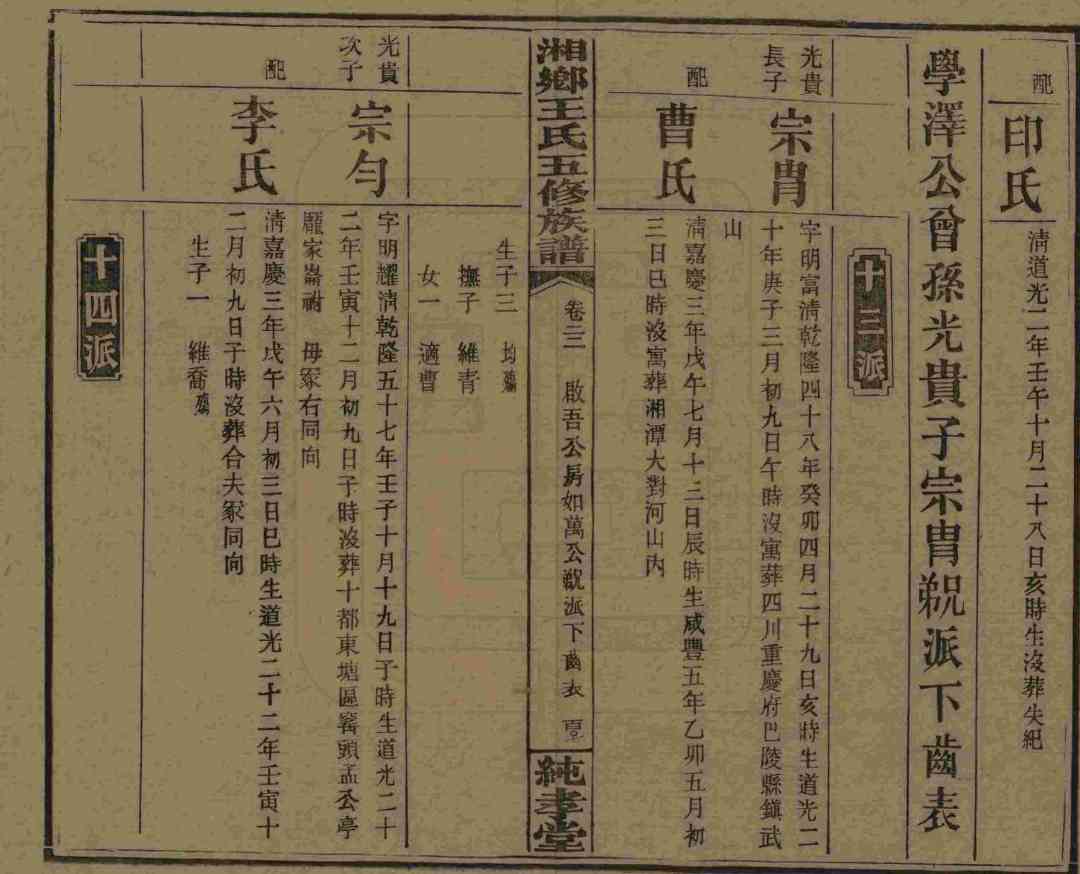 配
印氏
淸道光二年壬午十月二十八日亥時生沒葬失紀
學澤公曾孫光貴子宗胄㲽派下齒表
十三派
光貴
長子
宗胄
字明富淸乾隆四十八年癸卯四月二十九日亥時生道光二
十年庚子三月初九日午時沒寓葬四川重慶府巴陵縣鎭武
山
配
曹氏
淸嘉慶三年戊午七月十三日辰時生咸豐五年乙卯五月初
三日巳時沒寓葬湘潭大對河山內
湘鄉王氏五修族譜
卷二二 啟吾公房如萬公㲽派下齒表
純孝堂
生子三 均殤
撫子 維青
女一 適曹
光貴
次子
宗勻
字明耀淸乾隆五十七年壬子十月十九日子時生道光二十
二年壬寅十二月初九日子時沒葬十都東塘區窰頭孟公亭
龎家崙祔 母冢右同向
配
李氏
淸嘉慶三年戊午六月初三日巳時生道光二十二年壬寅十
二月初九日子時沒葬合夫冢同向
生子一 維喬殤
十四派